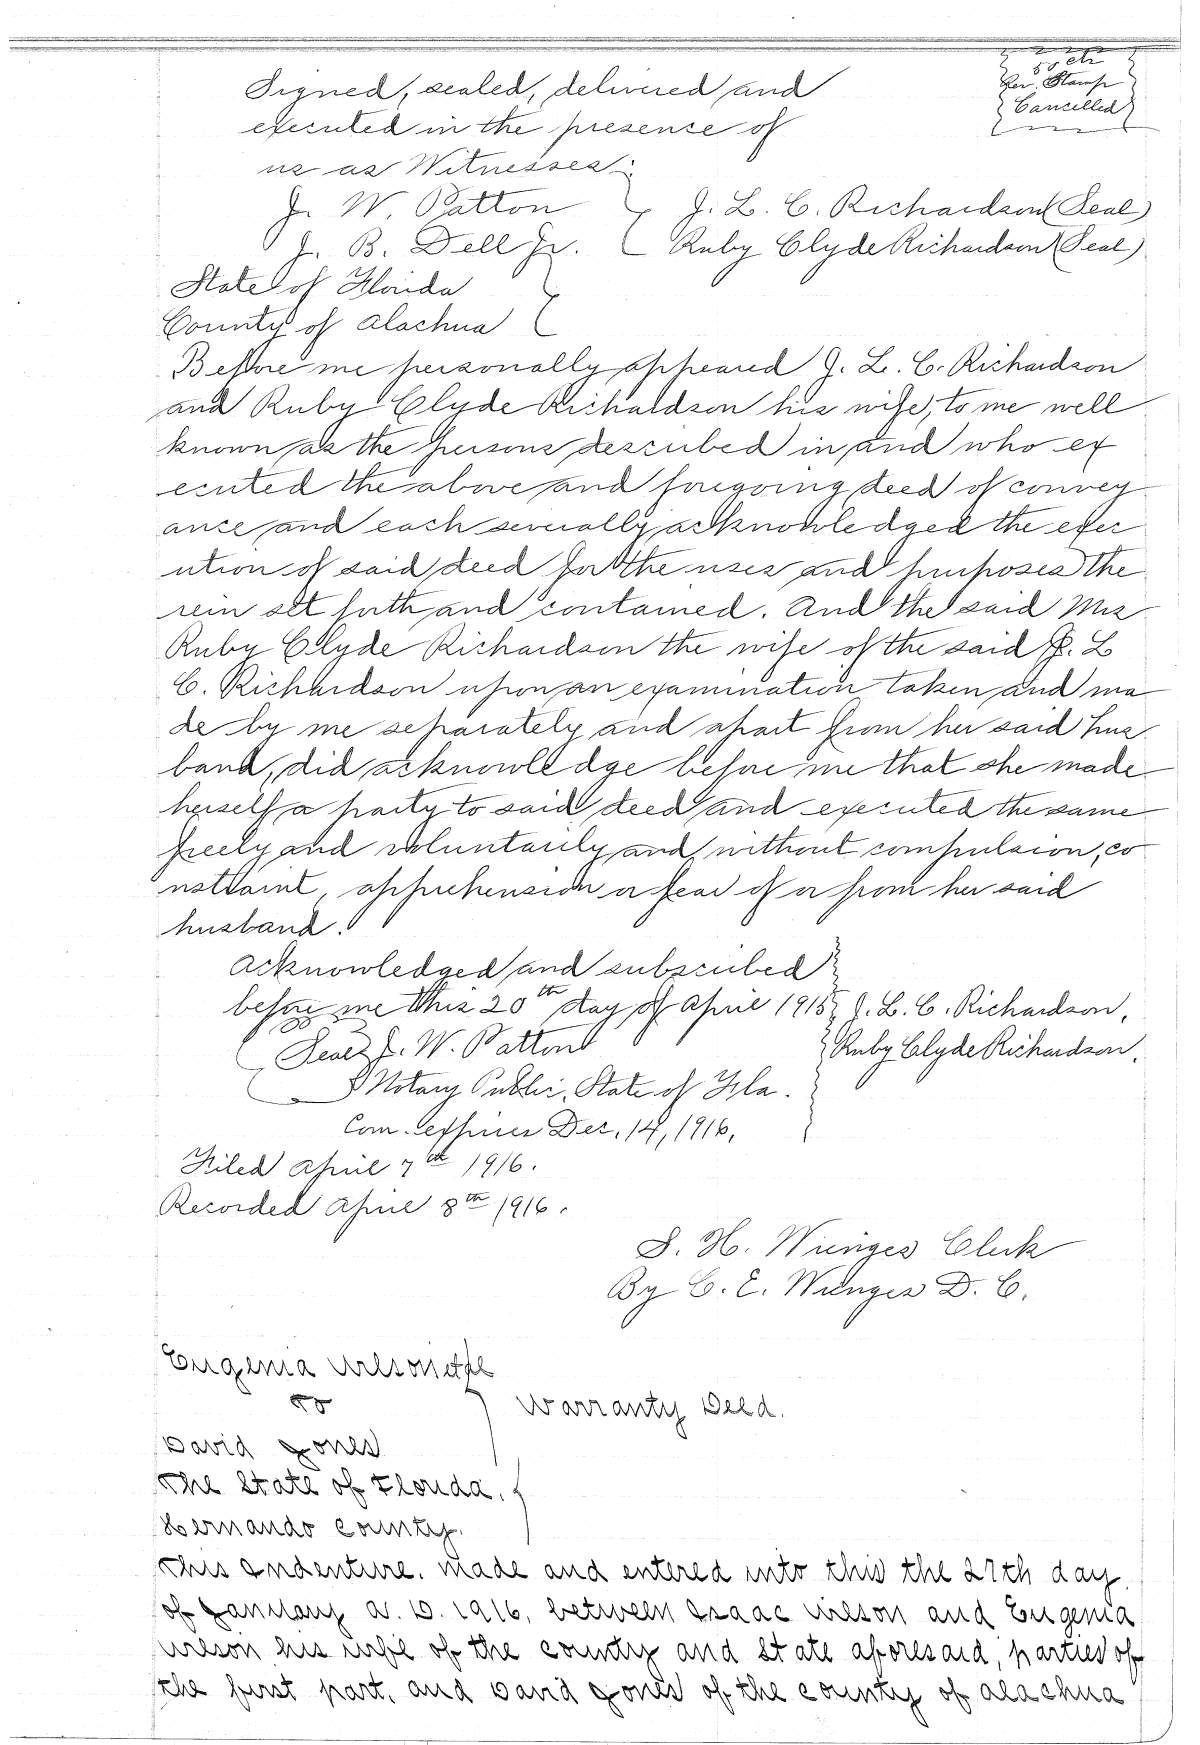 50 cts
Rev. Stamp
Cancelled
Signed, sealed, delivered and
executed in the presence of
us as Witnesses:
J. W. Patton
J. L. C. Richardson (Seal)
J. B. Dell Jr.
Ruby Clyde Richardson (Seal)
State of Florida
County of Alachua
Before me personally appeared J. L. C. Richardson
and Ruby Clyde Richardson his wife, to me well
known as the persons described in and who ex
ecuted the above and foregoing deed of convey
ance and each severally acknowledged the exec
ution of said deed for the uses and purposes the
rein set forth and contained. And the said Mrs
Ruby Clyde Richardson the wife of the said J. L
C. Richardson upon an examination taken and ma
de by me separately and apart from her said hus
band, did acknowledge before me that she made
herself a party to said deed and executed the same
freely and voluntarily and without compulsion, co
nstraint, apprehension or fear of or from her said
husband.
Acknowledged and subscribed
before me this 20th day of April 1915
J. L. C. Richardson,
Seal J. W. Patton
Ruby Clyde Richardson.
Notary Public, State of Fla.
Com. expires Dec. 14, 1916.
Filed April 7th 1916.
Recorded April 8th 1916.
S. H. Wienges Clerk
By C. E. Wienges D. C.
Eugenia Wilson et al
To
Warranty Deed.
David Jones
The State of Florida.
Hernando County.
This Indenture. made and entered into this the 27th day
of January A. D. 1916, between Isaac Wilson and Eugenia
Wilson his wife of the county and State aforesaid, parties of
the first part, and David Jones of the county of Alachua